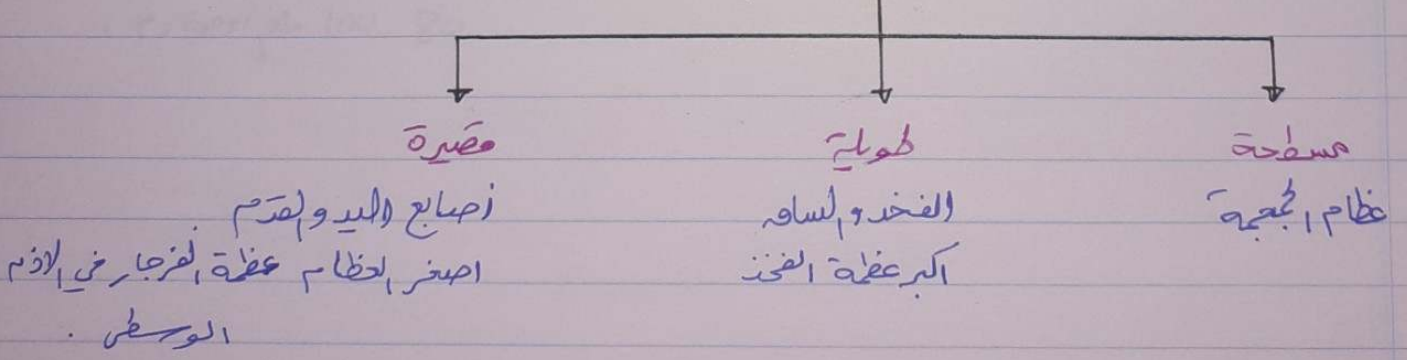 مسطحة
عظام الجمجمة
طويلة
الفخد والساق
اكبر عظمة الفخذ
قصيرة
أصابع اليد والقدم
اصغر العظام عظمة الفرجار في الاذن
الوسطى .